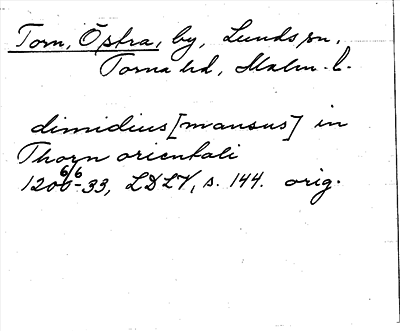 Torn, Östra, by, Lunds sn.
Torna hd, Malm. l.
dimidius [mansus] in
Thorn orientali
1206/6-33, LDLV, s. 144. orig.